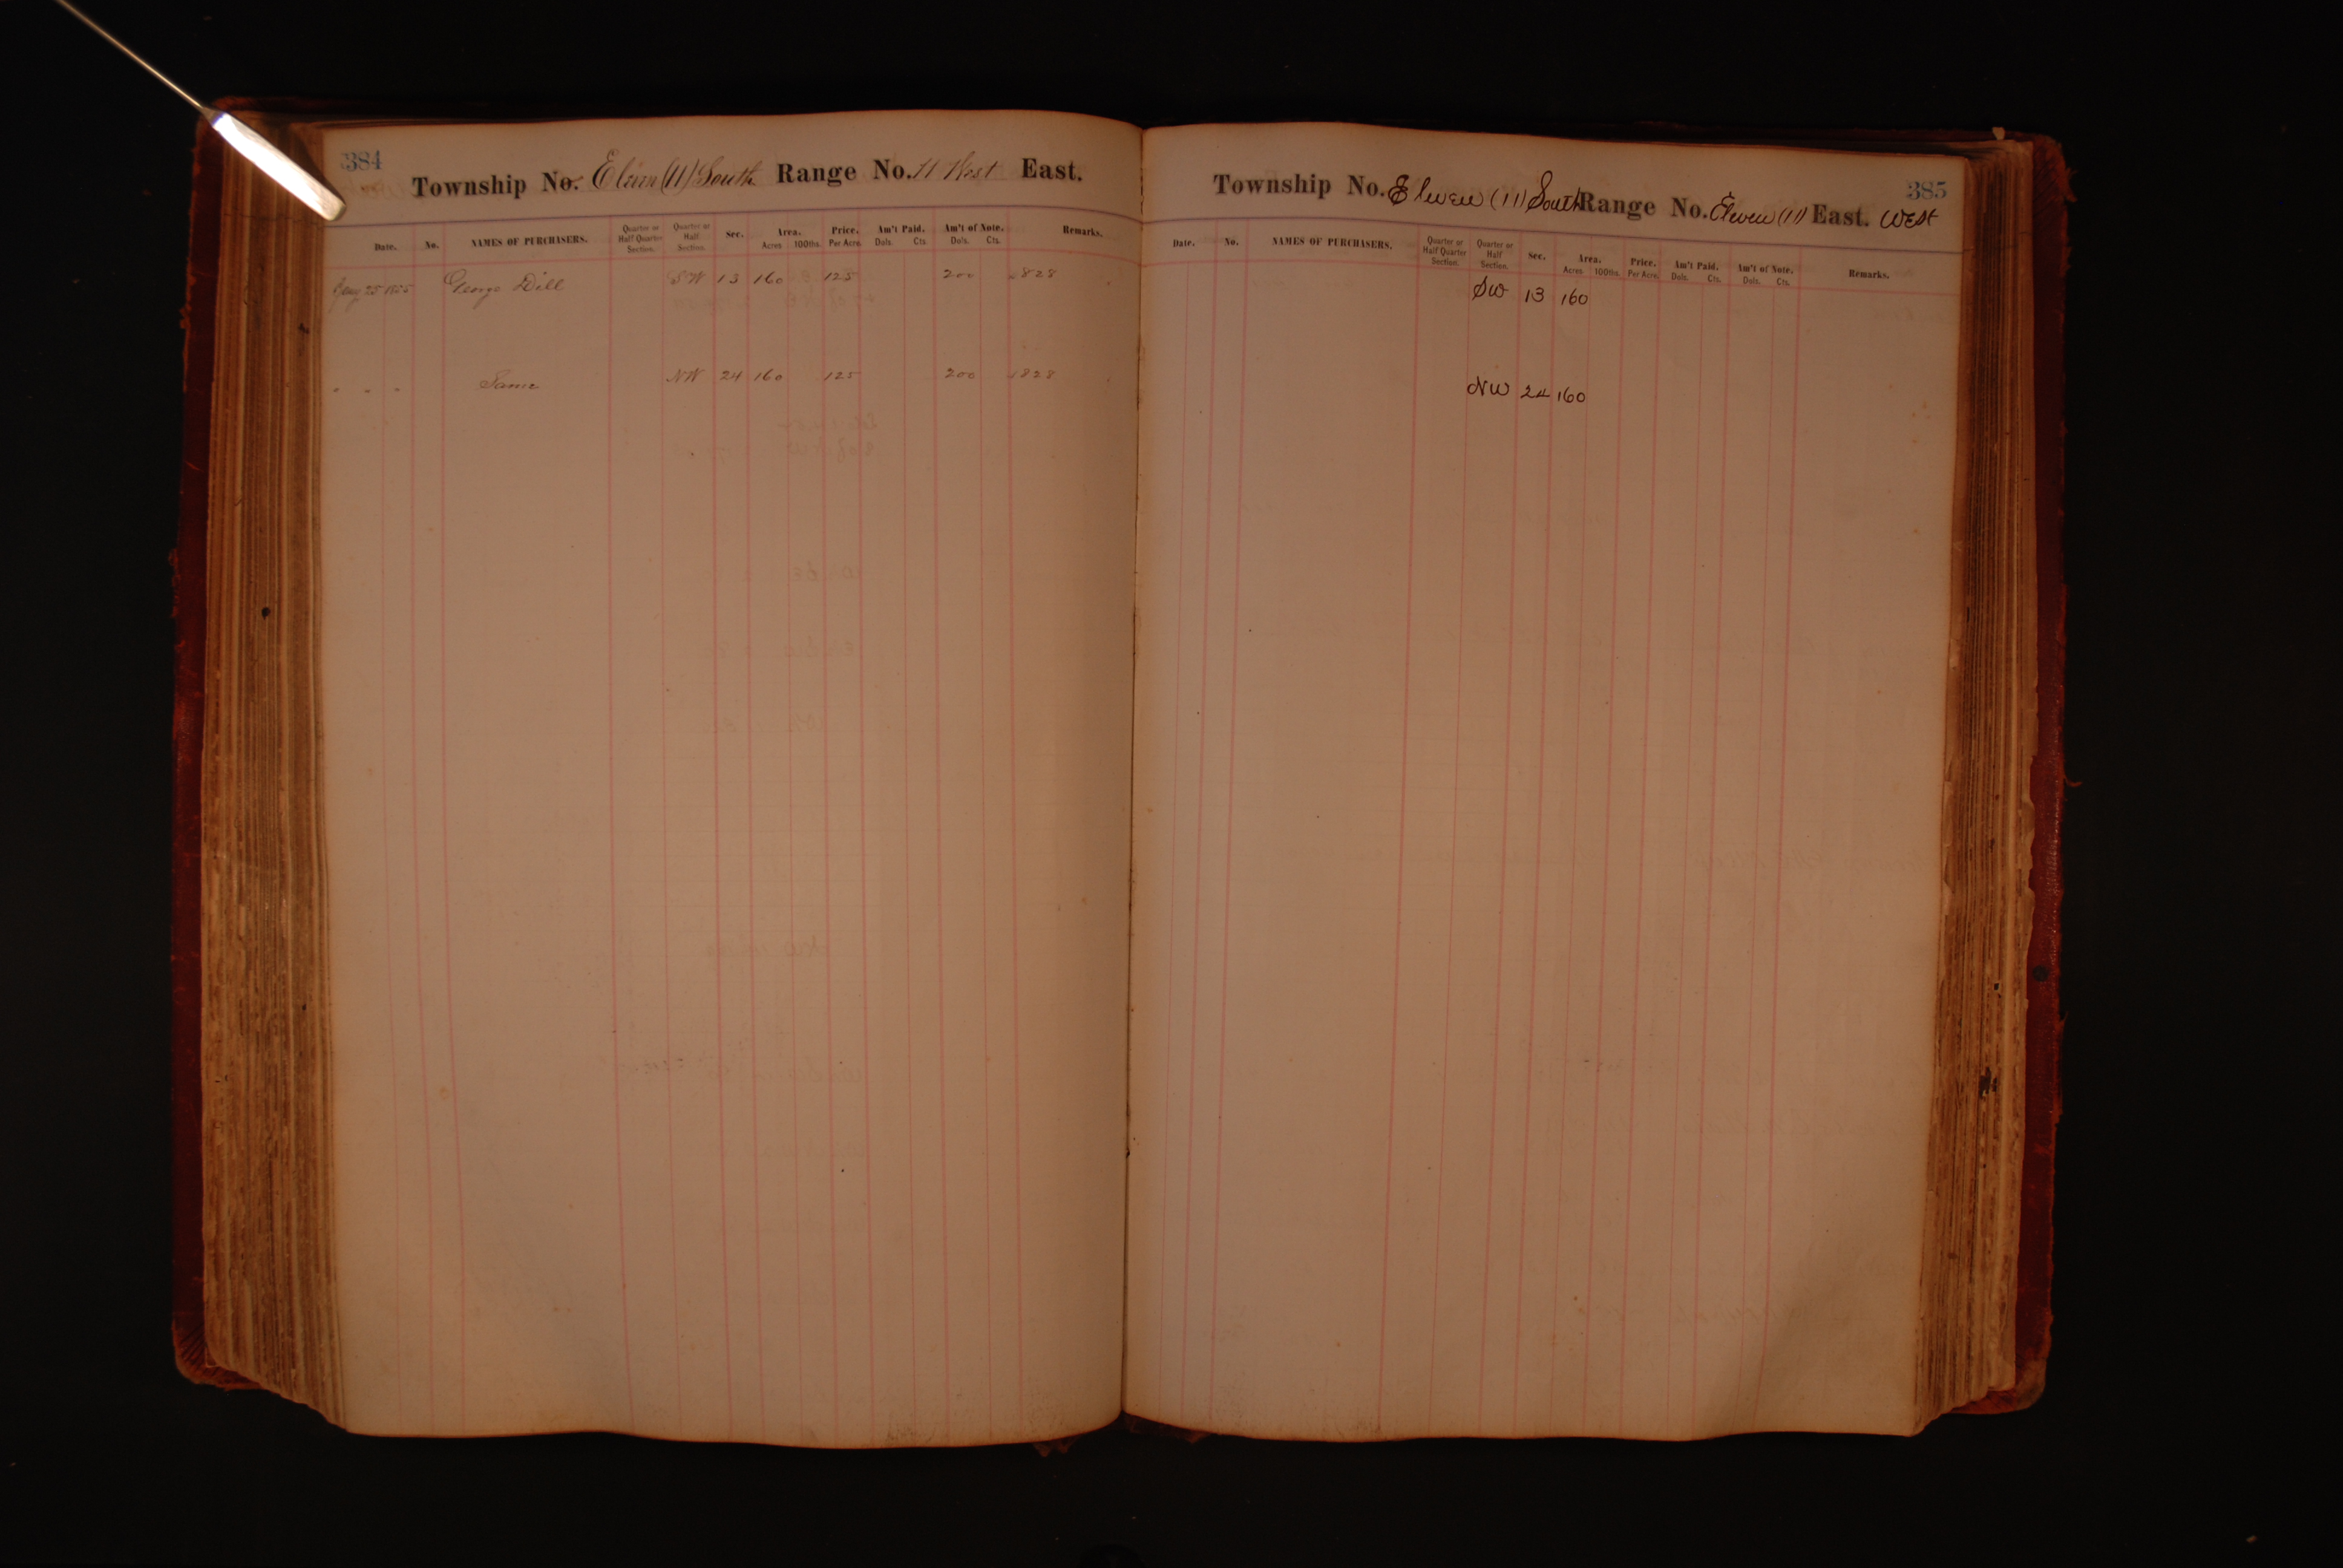 384
Township No. Eleven (11) South Range No. 11 West East.
Date. No. NAMES OF PURCHASERS. Quarter or Half Quarter Section. Quarter or Half Section. Sec. Area. Acres 100ths. Price. Per Acre. Am't Paid. Dols. Cts. Am't of Note. Dols. Cts. Remarks.
Jany 25 1855 George Dill SW 13 160 125 200 828
" " " Same NW 24 160 125 200 828
385
Township No. Eleven (11) South Range No. Eleven (11) East. West
Date. No. NAMES OF PURCHASERS. Quarter or Half Quarter Section. Quarter or Half Section. Sec. Area. Acres 100ths. Price. Per Acre. Am't Paid. Dols. Cts. Am't of Note. Dols. Cts. Remarks.
SW 13 160
NW 24 160